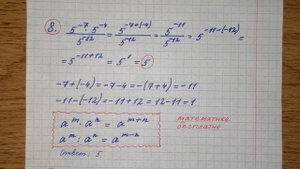 8. (5⁻⁷ · 5⁻⁴)/5⁻¹² = 5⁻⁷⁺⁽⁻⁴⁾/5⁻¹² = 5⁻¹¹/5⁻¹² = 5⁻¹¹⁻⁽⁻¹²⁾ =
= 5⁻¹¹⁺¹² = 5¹ = 5
-7+(-4) = -7-4 = -(7+4) = -11
-11-(-12) = -11+12 = 12-11 = 1
aᵐ · aⁿ = aᵐ⁺ⁿ
aᵐ : aⁿ = aᵐ⁻ⁿ
математика
бесплатно
Ответ: 5